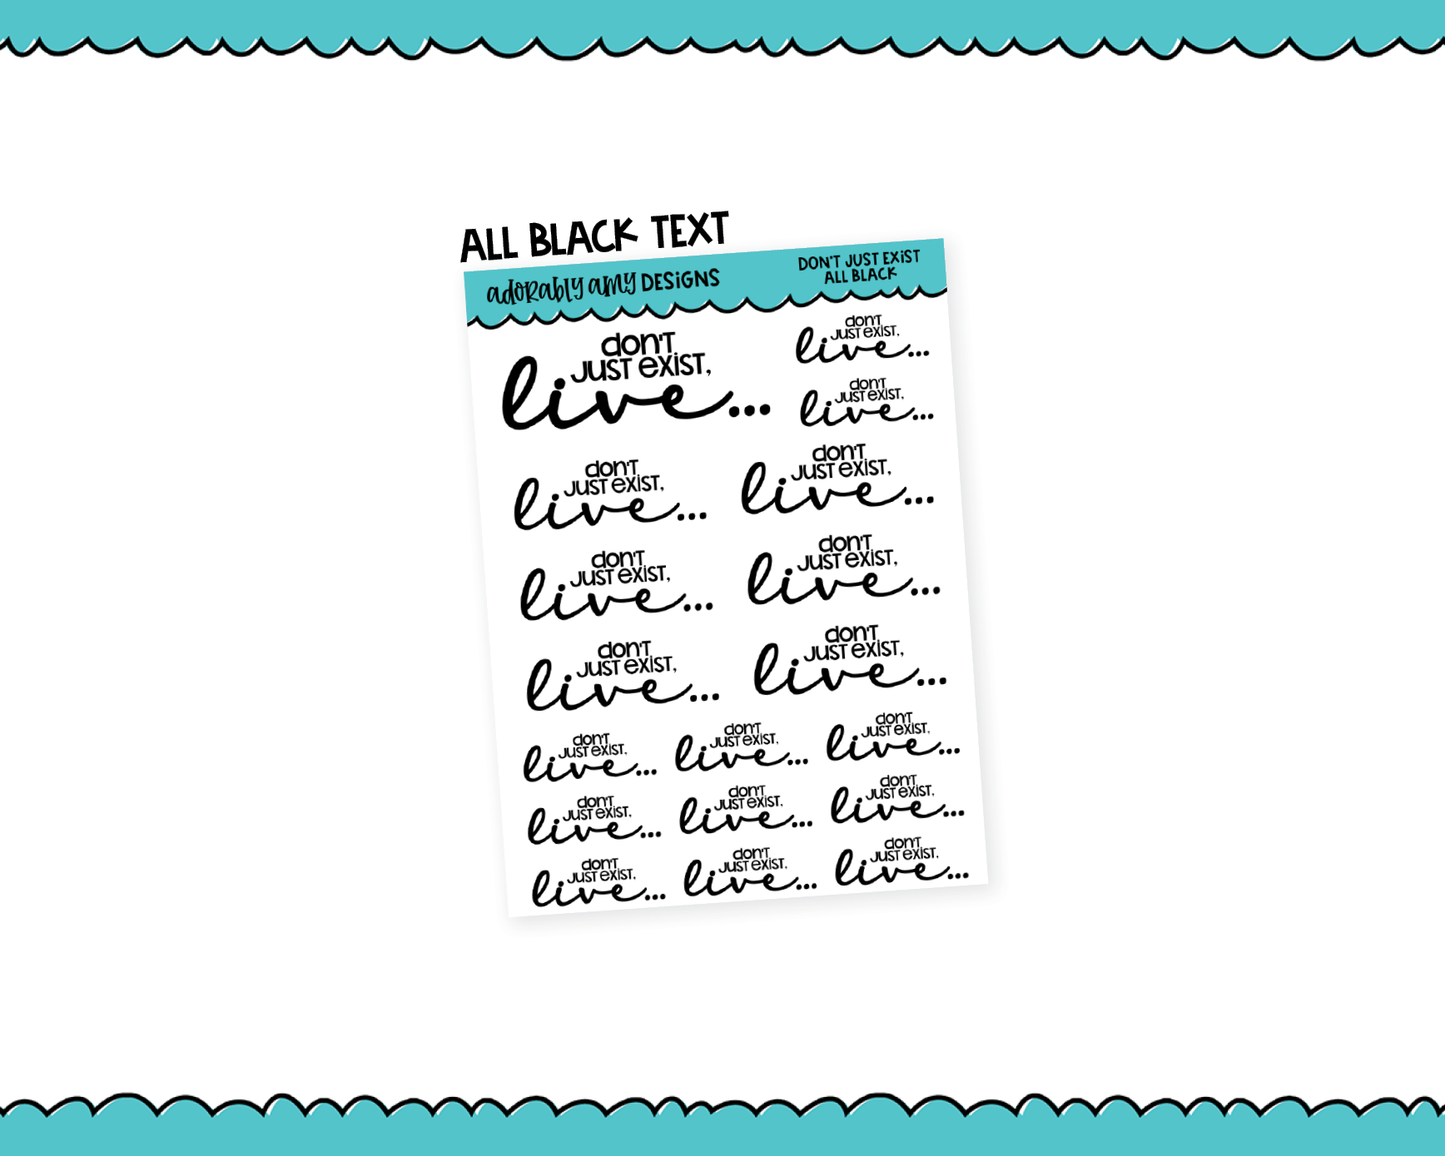 ALL BLACK TEXT
adorably amy DESiGNS
DON'T JUST EXiST
ALL BLACK
don't
just exist,
live...
don't
just exist,
live...
don't
just exist,
live...
don't
just exist,
live...
don't
just exist,
live...
don't
just exist,
live...
don't
just exist,
live...
don't
just exist,
live...
don't
just exist,
live...
don't
just exist,
live...
don't
just exist,
live...
don't
just exist,
live...
don't
just exist,
live...
don't
just exist,
live...
don't
just exist,
live...
don't
just exist,
live...
don't
just exist,
live...
don't
just exist,
live...